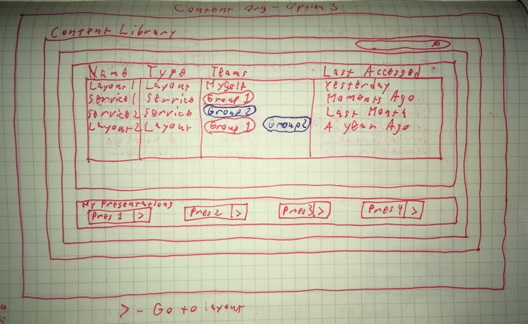 Content Org - Option 3
Content Library
Name Type Teams Last Accessed
Layout 1 Layout Myself Yesterday
Service 1 Service Group 1 Moments Ago
Service 2 Service Group 2 Last Month
Layout 2 Layout Group 1 Group 2 A Year Ago
My Presentations
Pres 1 > Pres 2 > Pres 3 > Pres 4 >
> - Go to layout